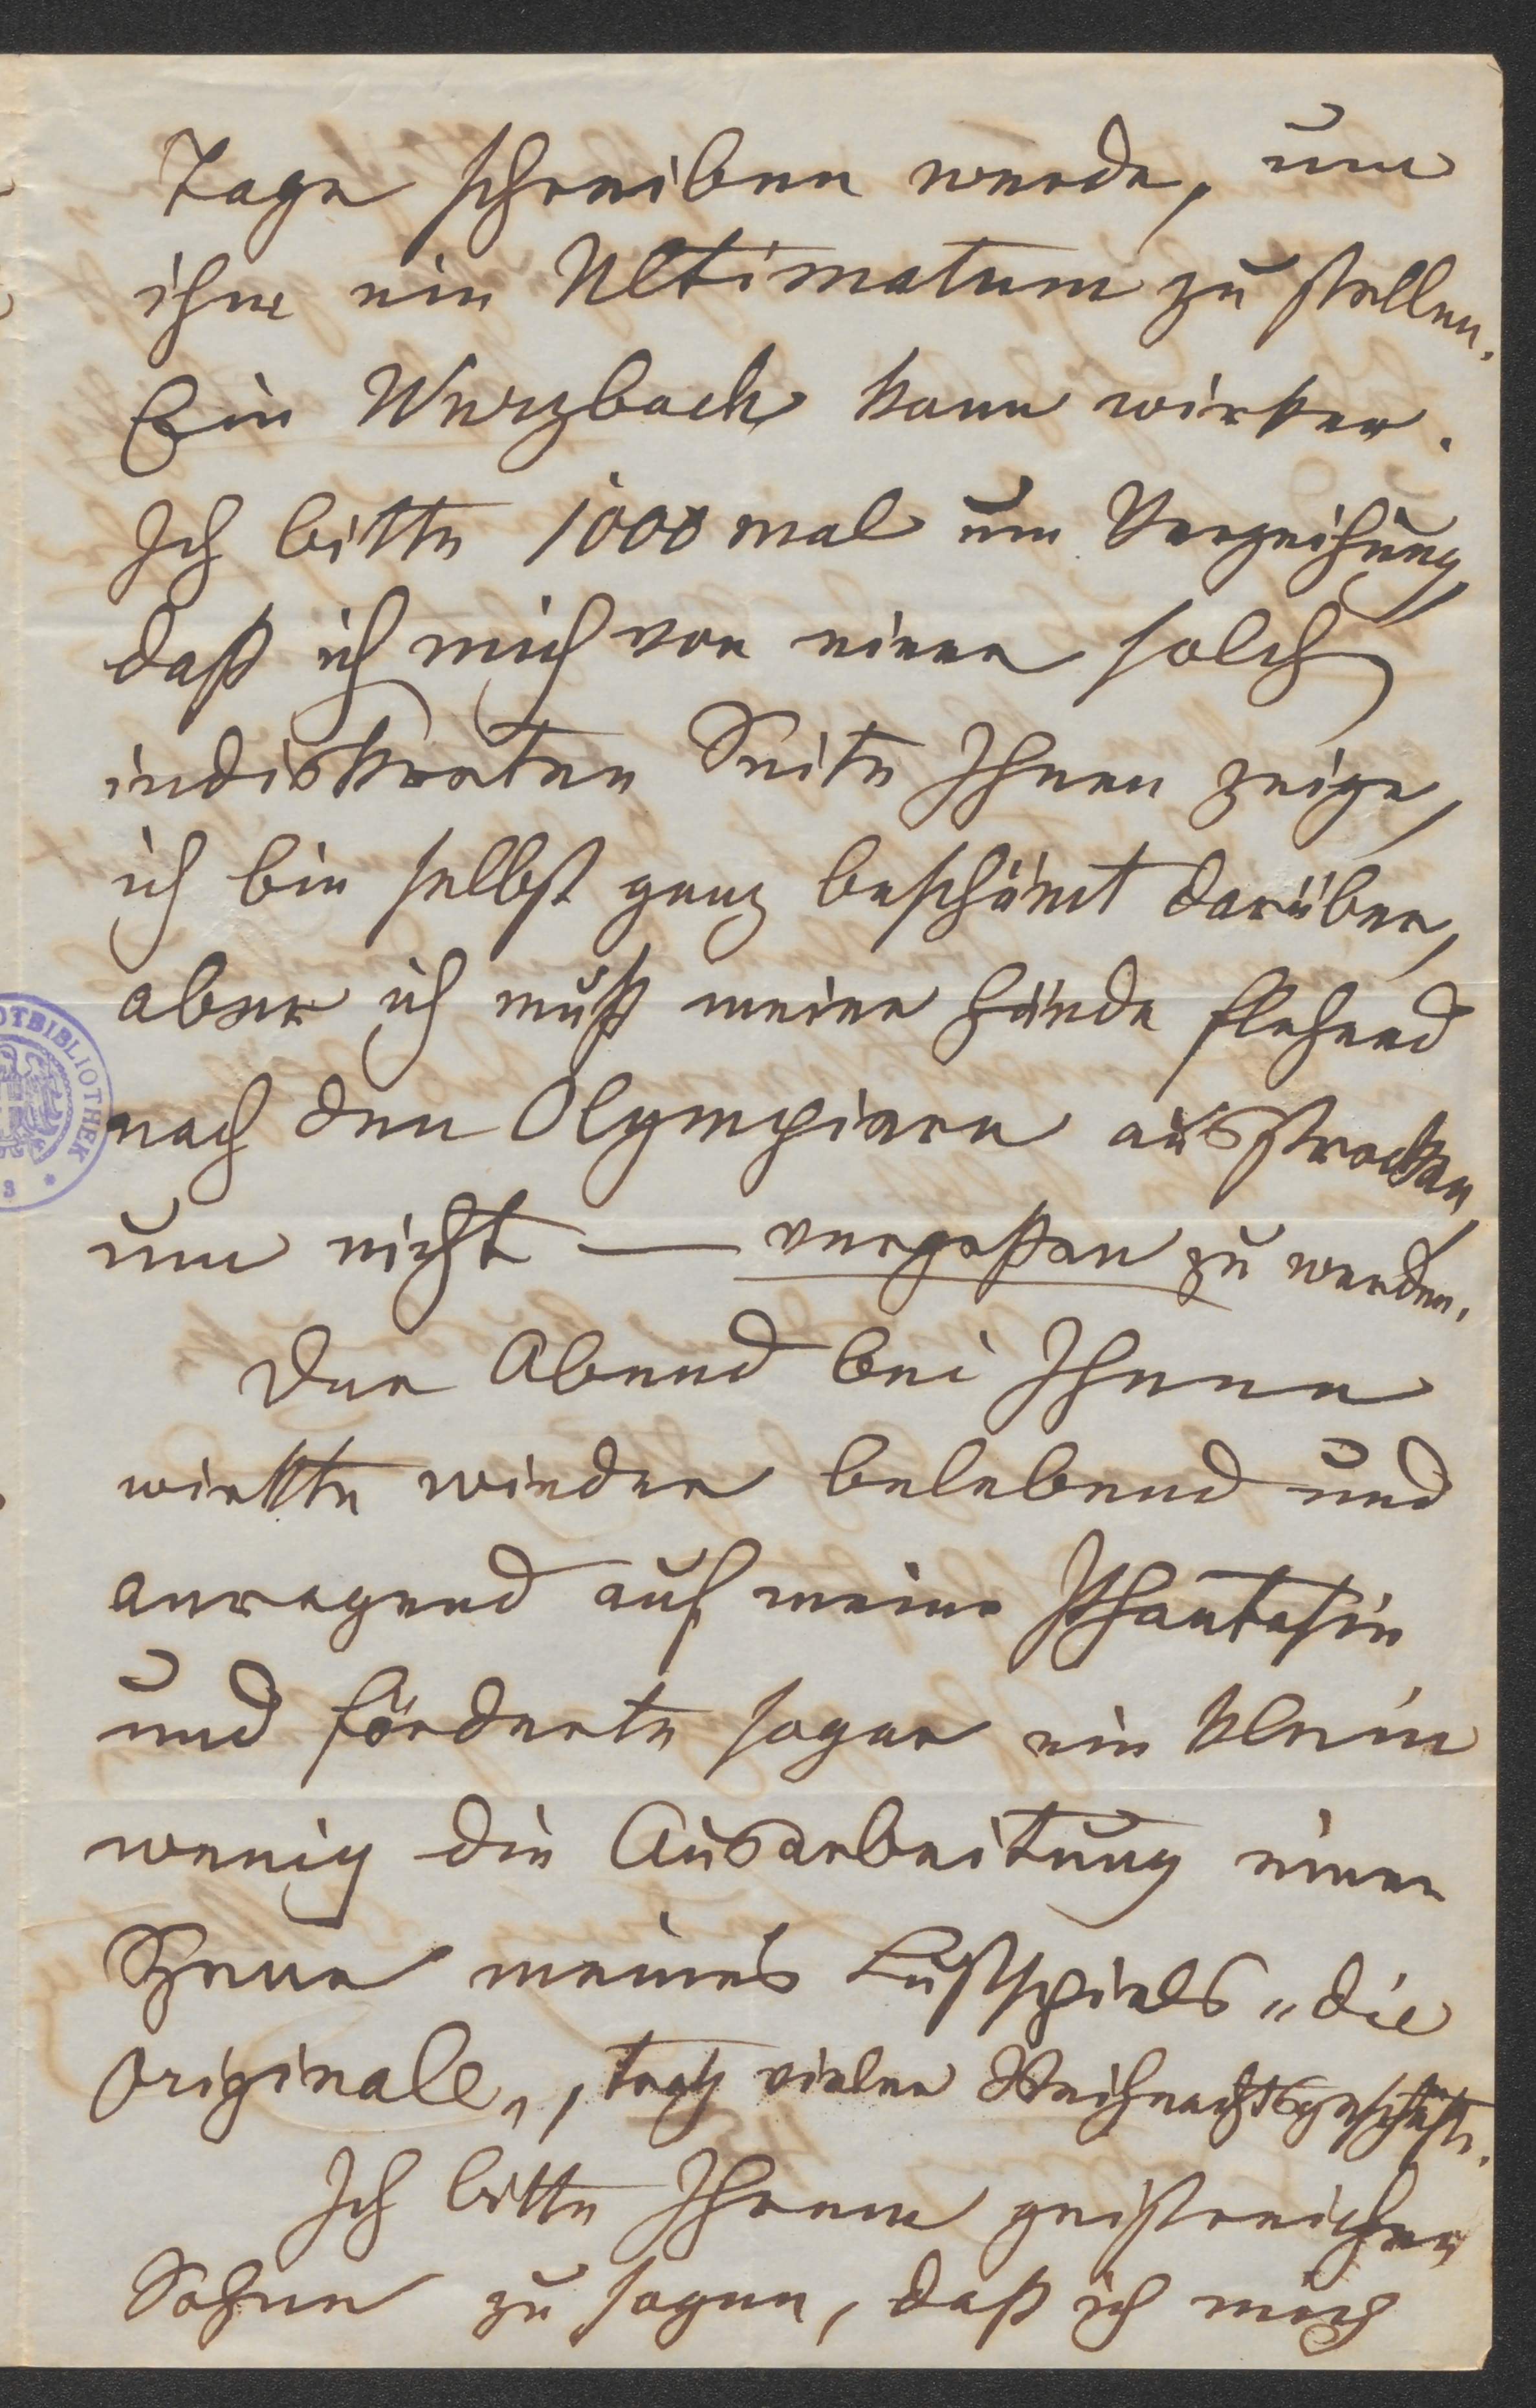 Tage schreiben werde, um
ihm ein Ultimatum zu stellen.
Ein Wurzbach kann wirken.
Ich bitte 1000 mal um Verzeihung,
daß ich mich von einer solch
indiskreten Seite Ihnen zeige,
ich bin selbst ganz beschämt darüber,
aber ich muß meine Hände flehend
nach den Olympiern ausstrecken,
um nicht — vergeßen zu werden.
Der Abend bei Ihnen
wirkte wieder belebend und
anregend auf meine Phantasie
und förderte sogar ein klein
wenig die Ausarbeitung einer
Szene meines Lustspiels „die
Originale„, trotz vieler Weihnachtsgeschäfte.
Ich bitte Ihrem geistreichen
Sohne zu sagen, daß ich mich
OTBIBLIOTHEK